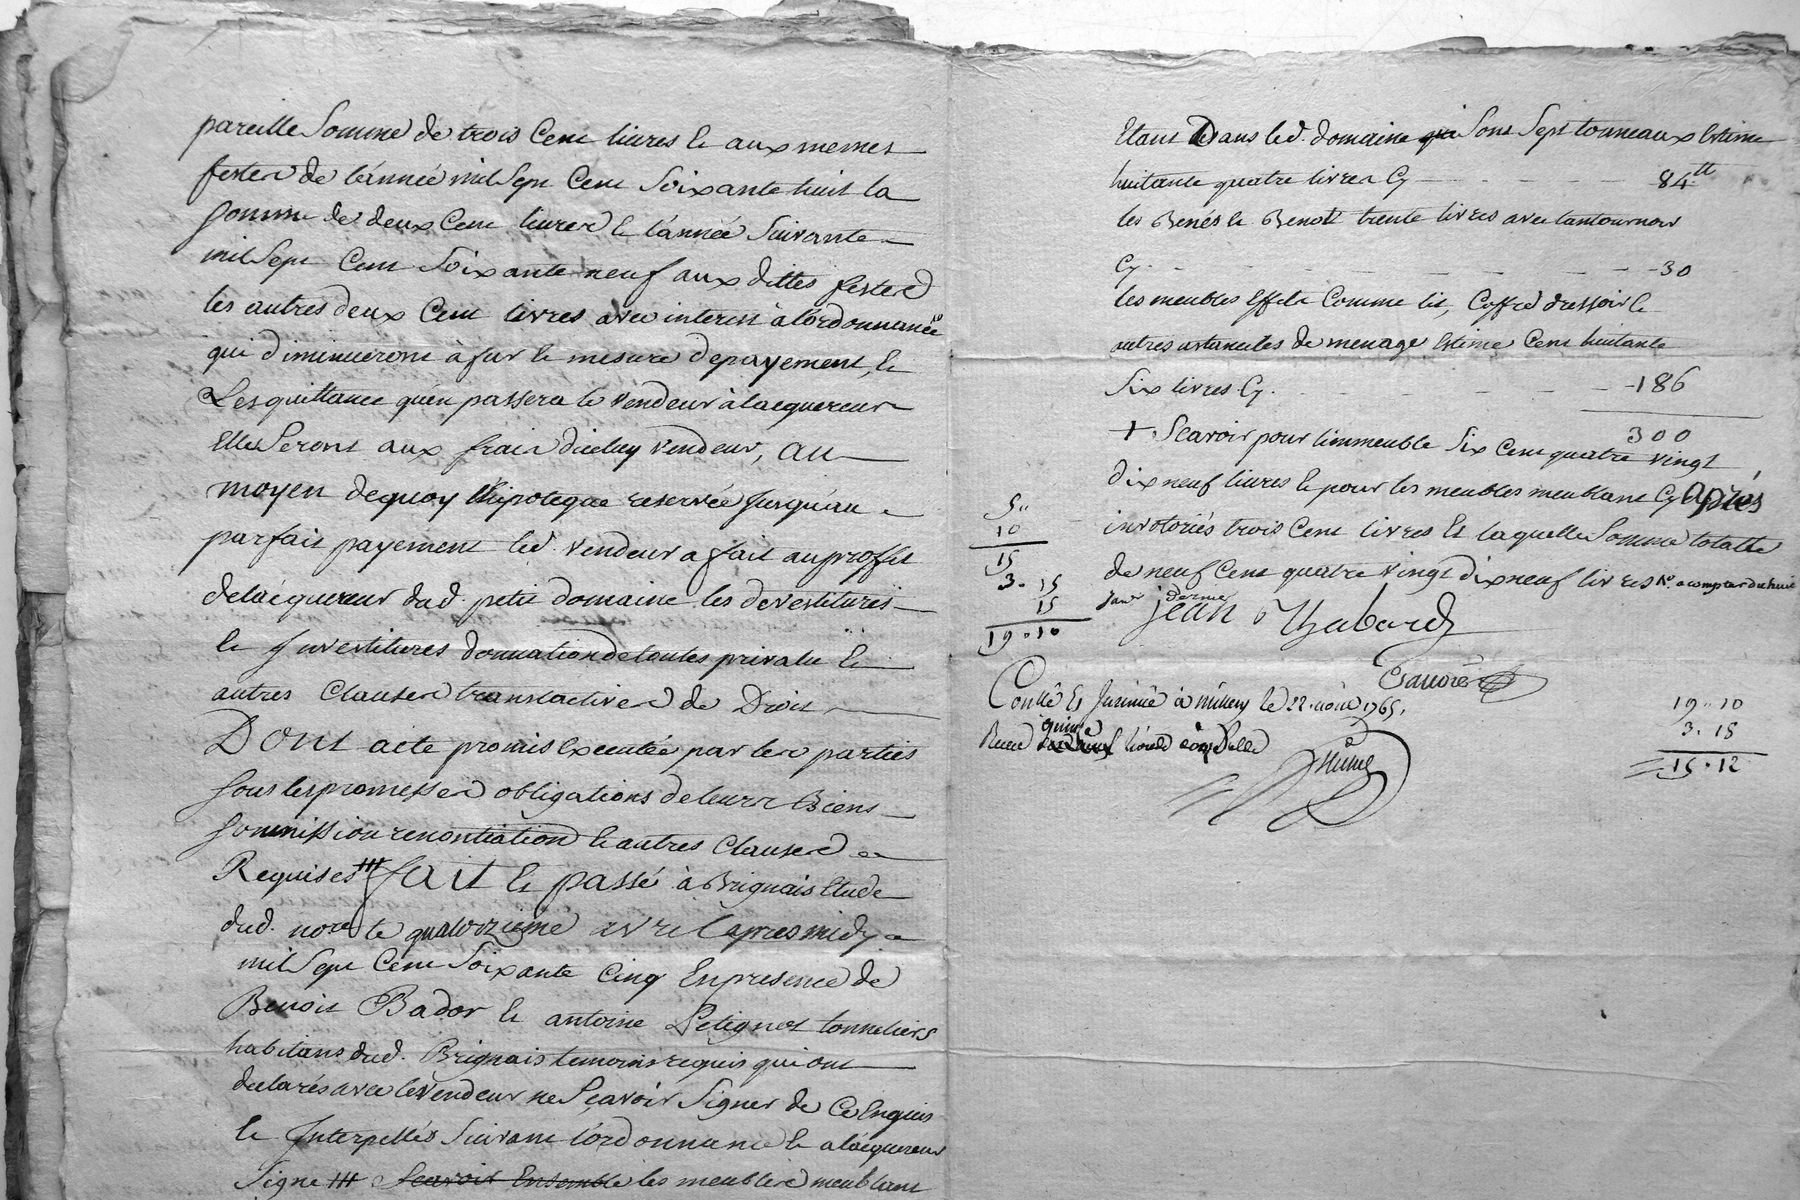 pareille Somme de trois Cent livres & aux memes
festes de l'année mil Sept Cent Soixante huit la
Somme de deux Cent livres & l'année Suivante
mil Sept Cent Soixante neuf aux dittes festes
les autres deux Cent livres avec interest à l'ordonnance
qui diminueront à fur & mesure de payement, &
Les quittance qu'en passera le vendeur à lacquereur
Elle Seront aux frais d'icluy vendeur, au
moyen dequoy l'hipoteque reservée jusqu'au
parfait payement led. vendeur a fait au proffit
de l'acquereur dud. petit domaine les devestitures
& Investitures donnation de toutes privalu &
autres Clauses translactives de Droit
Dont acte promis Executée par les parties
Sous les promesses obligations de leurs Biens
Sommission renontiation & autres Clauses
Requises ### fait & passé à Brignais Etude
dud. nore. le quatorzieme avril apres midy
mil Sept Cent Soixante Cinq En presence de
Benoit Bador & antoine Petignot tonneliers
habitans dud. Brignais temoins requis qui ont
declarés avec le vendeur ne Sçavoir Signer de Ce Enquis
& Interpellés Suivant l'ordonnance & a lacquereur
Signé ### Scavoir Ensemble les meubles meublant
Etant Dans led. domaine qui Sont Sept tonneaux Estimé
huitante quatre livres Cy 84tt
les Benes & Benot trente livres avec
Cy 30
les meubles Effets Comme lit, Coffre dressoir &
autres ustanciles de menage Estimé Cent huitante
Six livres Cy. 186
300
+ Scavoir pour l'immeuble Six Cent quatre vingt
dix neuf livres & pour les meubles meublant Cy après
invotoriés trois Cent livres Et laquelle Somme totalle
de neuf Cent quatre vingt dix neuf livres a compter du huit
Janr. dernier
Jean Chabard
5"
10
15
3. 15
15
19. 10
Conllé Et Insinué à millery le 22. 1765.
Receu quinze
19. 10
3. 18
15. 12